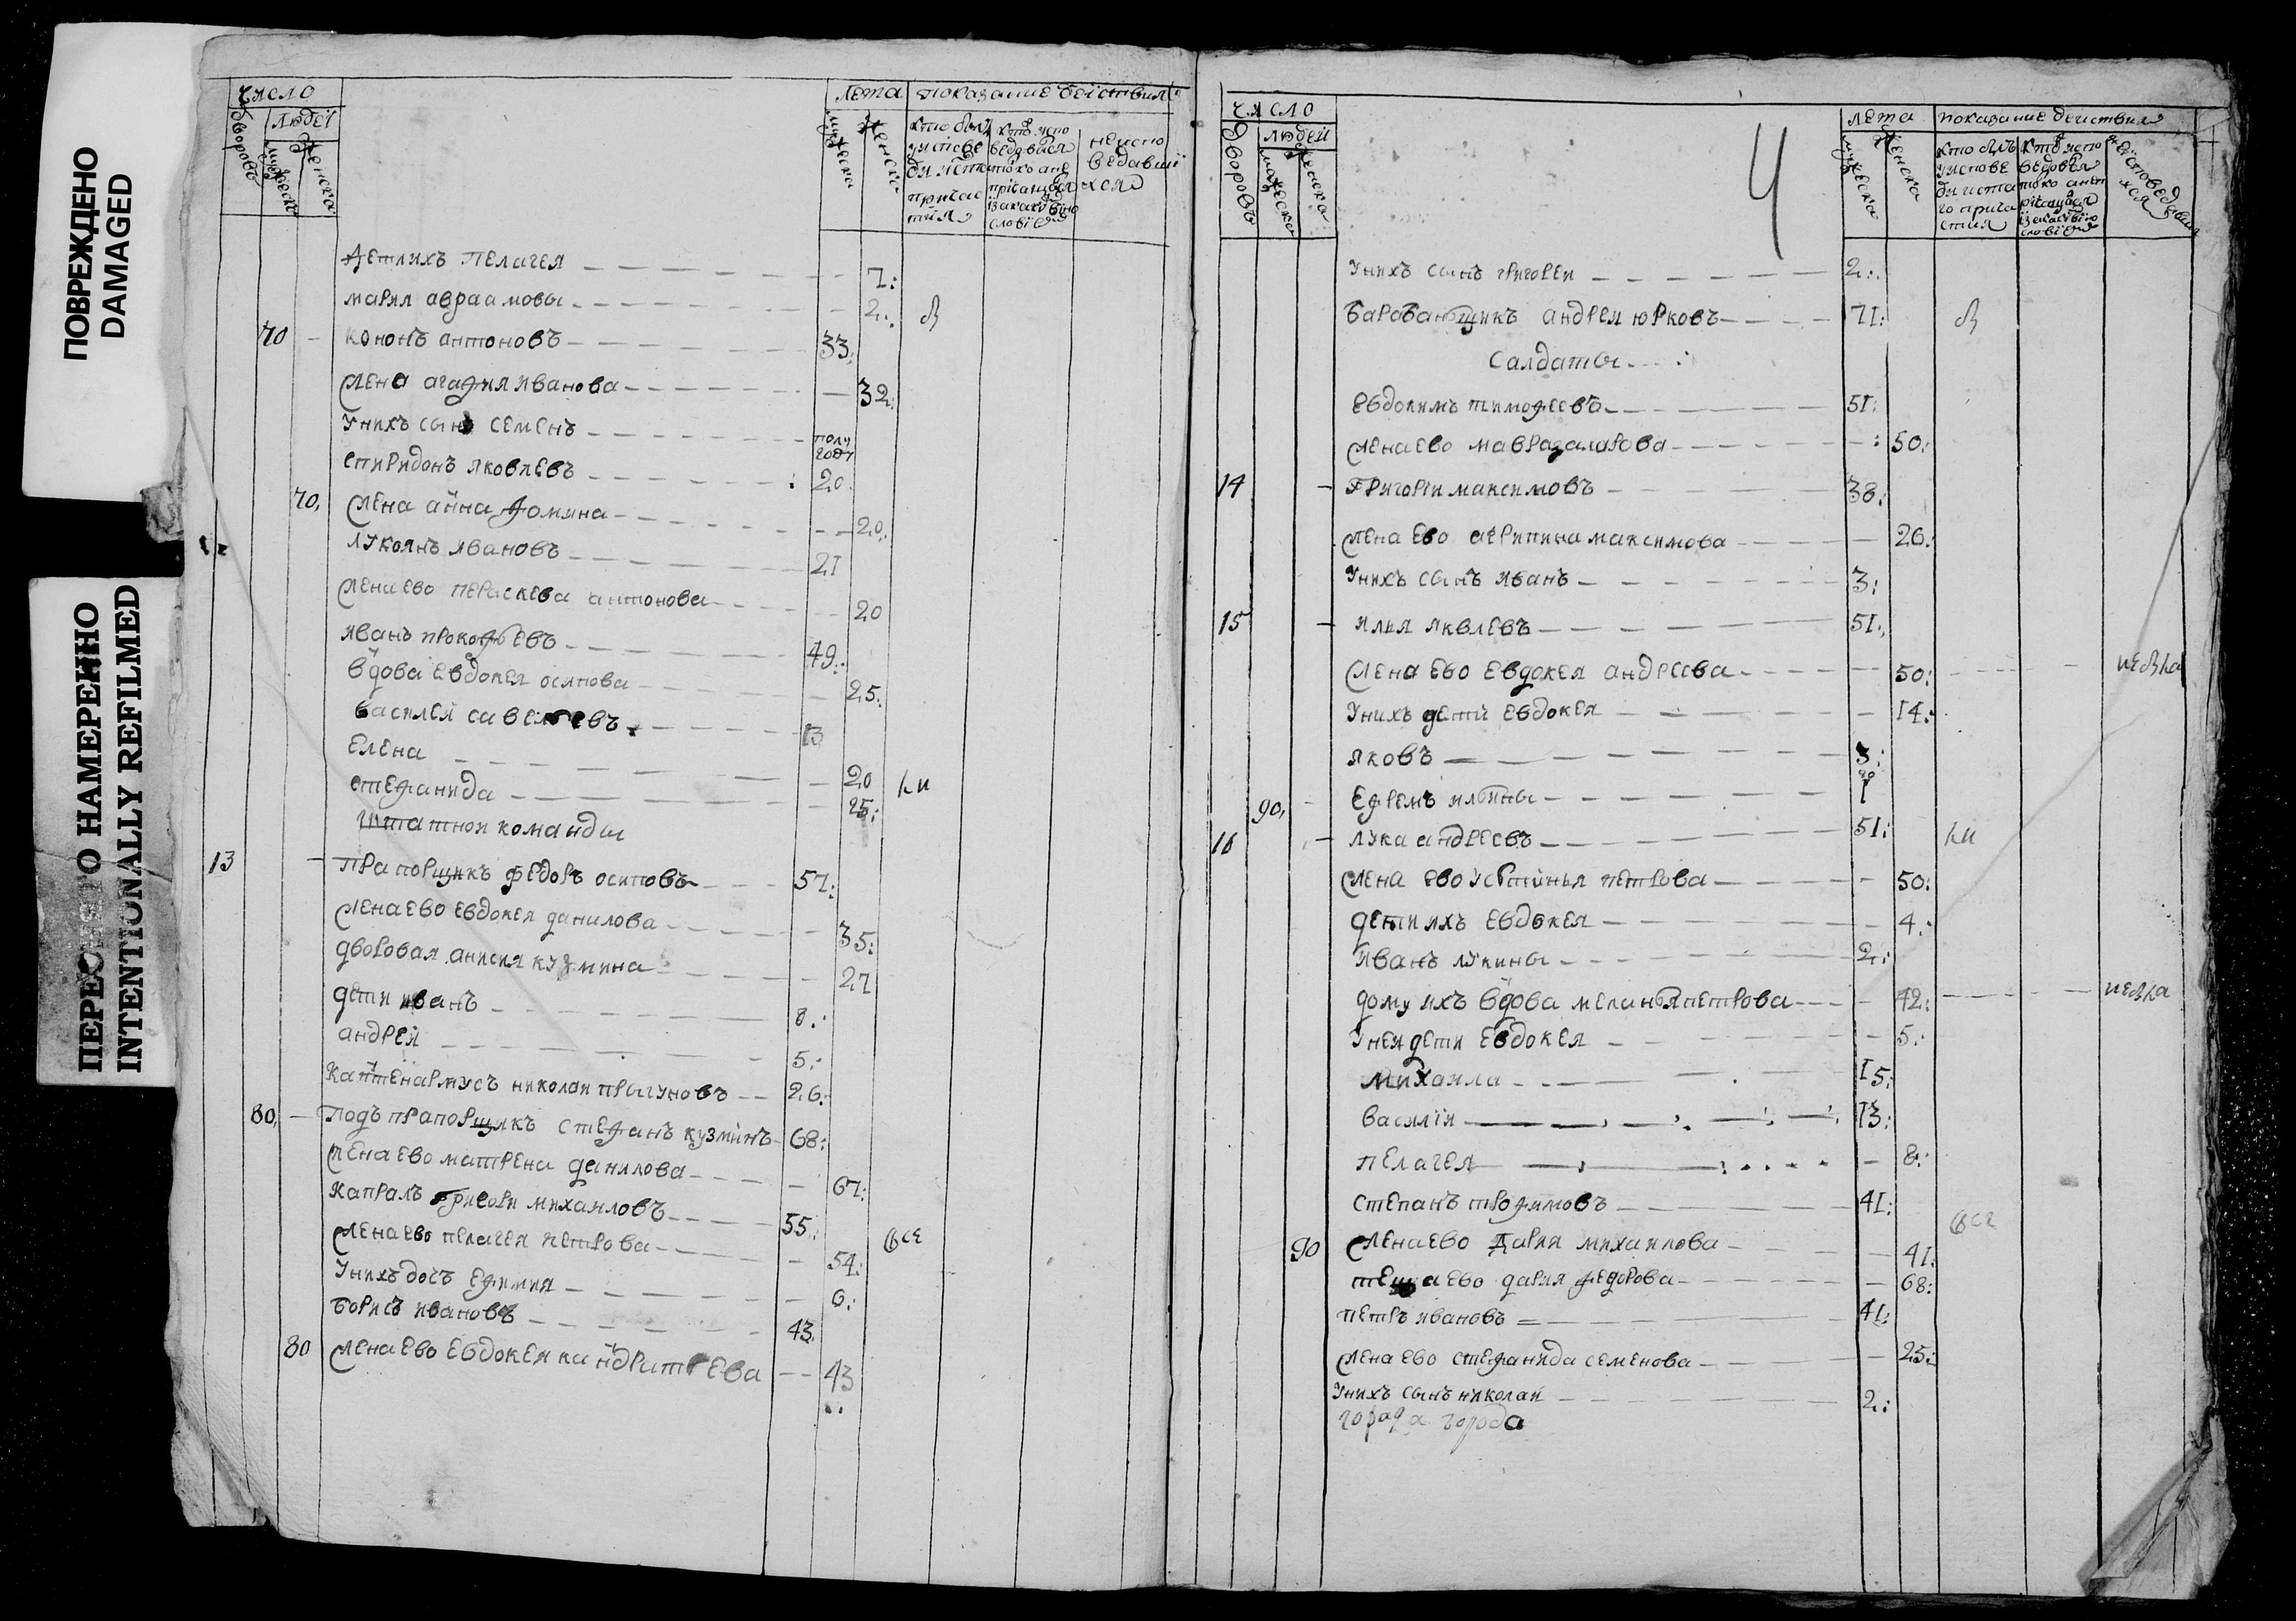 ПОВРЕЖДЕНО
DAMAGED
ПЕРЕСНЯТО НАМЕРЕННО
INTENTIONALLY REFILMED
число лета показание действия
дворовъ людей мужеска женска мужеска женска
кто былъ у исповеди и святого причастия
кто исповедовался токо а не причащался и за каким винословием
не исповедавшихся
дети ихъ пелагея 7:
мария авраамовы 2: в
70 кононъ антоновъ 33:
жена агафия иванова 32:
у нихъ сынъ семенъ полугоду
спиридонъ яковлевъ 20
70, жена анна фомина 20:
лукоянъ ивановъ 21
жена ево пераскева антонова 20
иванъ прокофьевъ 49:
вдова евдокея осипова 25:
василей савельевъ 13
елена 20 ки
стефанида 25:
штатнои команды
13 прапорщикъ федоръ осиповъ 57:
жена ево евдокея данилова 35:
дворовая анисия кузмина 27
дети иванъ 8:
андрей 5:
каптенармусъ николаи прыгуновъ 26:
80, подъпрапорщикъ стефанъ кузминъ 68:
жена ево матрена данилова 67:
капралъ григореи михаиловъ 55:
жена ево пелагея петрова 54: все
у нихъ дочь ефимия 6:
борисъ ивановъ 43
80 жена ево евдокея кандратьева 43
4
число лета показание действия
дворовъ людей мужеска женска мужеска женска
кто былъ у исповеди и святаго причастия
кто исповедовался токо а не причащался и за каким винословием
не исповедавшихся
у нихъ сынъ григореи 2:
барабанщикъ андреи юрковъ 71: в
салдаты
евдокимъ тимофеевъ 51:
жена ево мавра захарова 50:
14 григореи максимовъ 38:
жена ево агрипина максимова 26:
у нихъ сынъ иванъ 3:
15 илья яквлевъ 51:
жена ево евдокея андреева 50:
у нихъ дети евдокея 14:
яковъ 3:
90, ефремъ ильины
16 лука андреевъ 51: ки
жена ево устинья петрова 50:
дети ихъ евдокея 4:
иванъ лукины 2:
дому ихъ вдова меланья петрова 42:
у неи дети евдокея 5:
михаила 15:
василии 13:
пелагея 8:
степанъ трофимовъ 41: все
90 жена ево дария михаилова 41:
теща ево дария федорова 68:
петръ ивановъ 41:
жена ево стефанида семенова 25:
у нихъ сынъ николаи 2:
города города